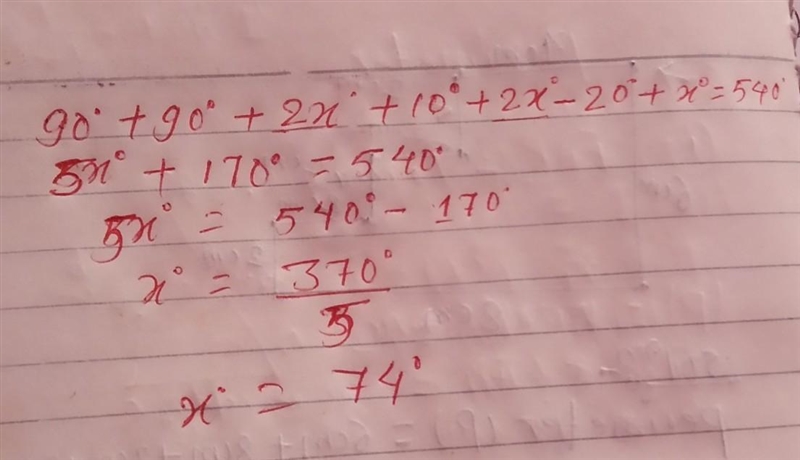 90° + 90° + 2x° + 10° + 2x° - 20° + x° = 540°
5x° + 170° = 540°
5x° = 540° - 170°
x° = 370° / 5
x° = 74°